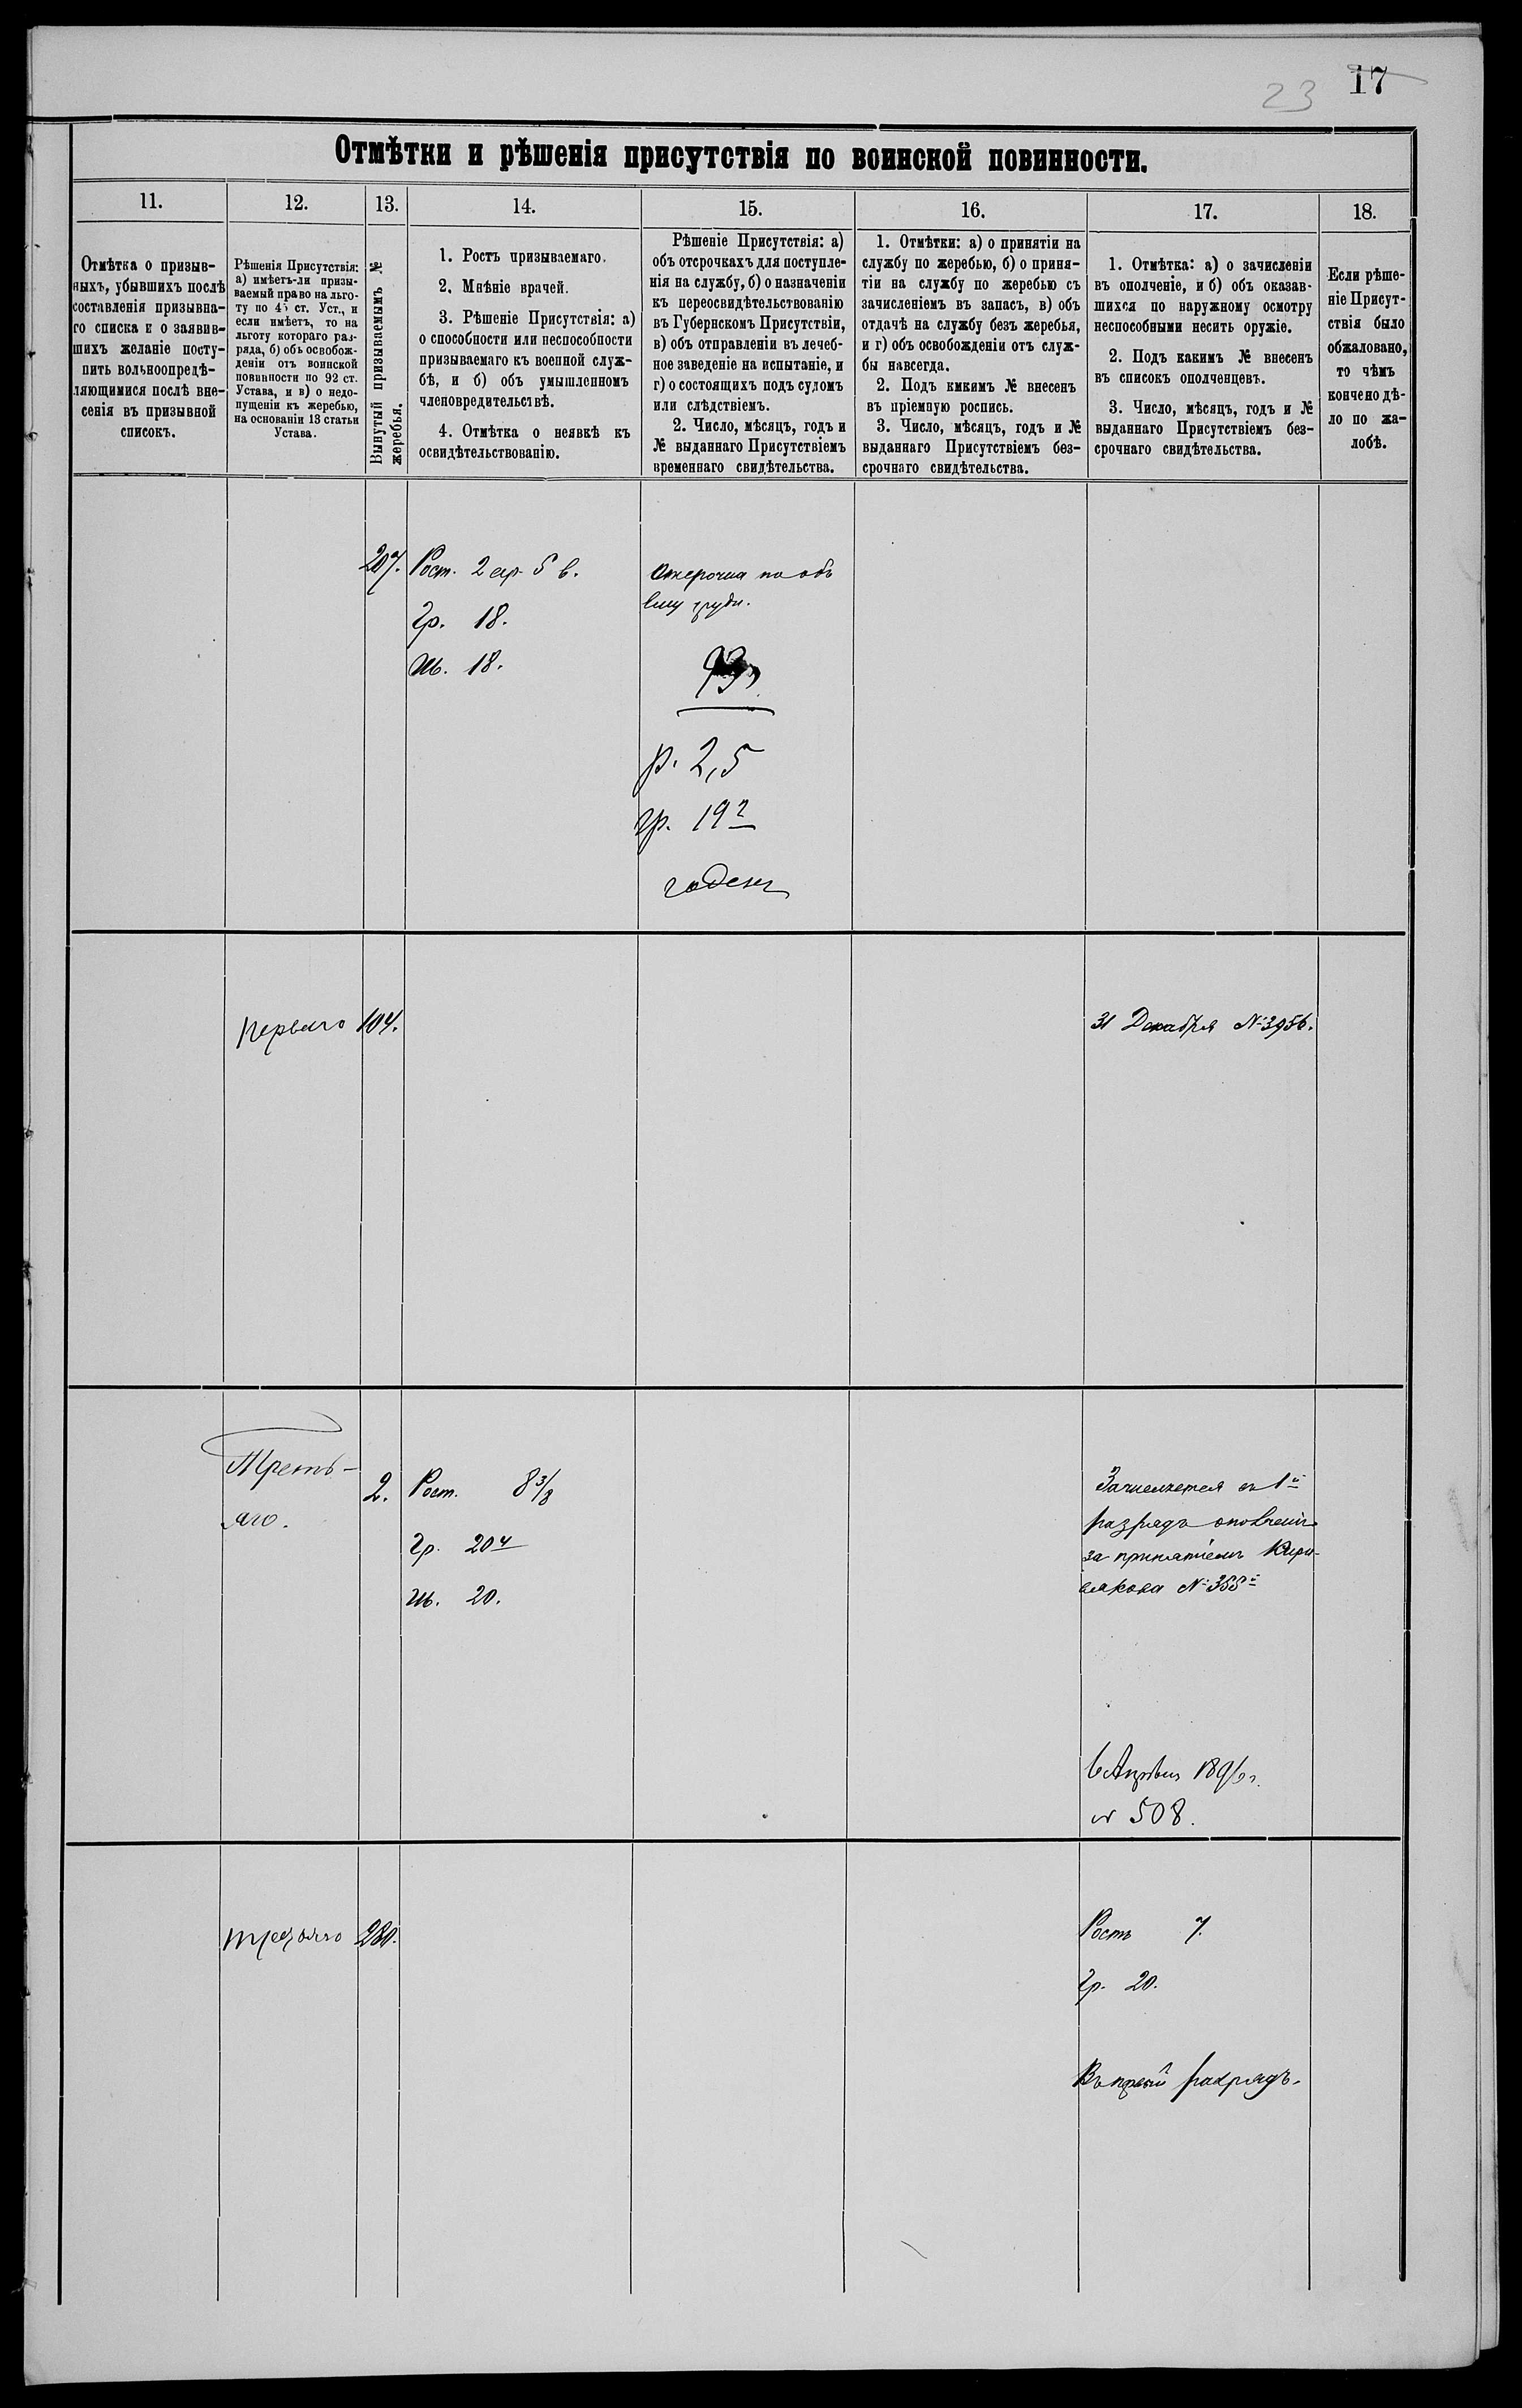 23 17
Отмѣтки и рѣшенія присутствія по воинской повинности.
11.
12.
13.
14.
15.
16.
17.
18.
Отмѣтка о призыв-
ныхъ, убывшихъ послѣ
составленія призывна-
го списка и о заявив-
шихъ желаніе посту-
пить вольноопредѣ-
ляющимися послѣ вне-
сенія въ призывной
списокъ.
Рѣшенія Присутствія:
а) имѣетъ-ли призы-
ваемый право на льго-
ту по 45 ст. Уст., и
если имѣетъ, то на
льготу котораго раз-
ряда, б) объ освобож-
деніи отъ воинской
повинности по 92 ст.
Устава, и в) о недо-
пущеніи къ жеребью,
на основаніи 13 статьи
Устава.
Вынутый призываемымъ №
жеребья.
1. Ростъ призываемаго.
2. Мнѣніе врачей.
3. Рѣшеніе Присутствія: а)
о способности или неспособности
призываемаго къ военной служ-
бѣ, и б) объ умышленномъ
членовредительствѣ.
4. Отмѣтка о неявкѣ къ
освидѣтельствованію.
Рѣшеніе Присутствія: а)
объ отсрочкахъ для поступле-
нія на службу, б) о назначеніи
къ переосвидѣтельствованію
въ Губернскомъ Присутствіи,
в) объ отправленіи въ лечеб-
ное заведеніе на испытаніе, и
г) о состоящихъ подъ судомъ
или слѣдствіемъ.
2. Число, мѣсяцъ, годъ и
№ выданнаго Присутствіемъ
временнаго свидѣтельства.
1. Отмѣтки: а) о принятіи на
службу по жеребью, б) о приня-
тіи на службу по жеребью съ
зачисленіемъ въ запасъ, в) объ
отдачѣ на службу безъ жеребья,
и г) объ освобожденіи отъ служ-
бы навсегда.
2. Подъ кмкимъ № внесенъ
въ пріемную роспись.
3. Число, мѣсяцъ, годъ и №
выданнаго Присутствіемъ без-
срочнаго свидѣтельства.
1. Отмѣтка: а) о зачисленіи
въ ополченіе, и б) объ оказав-
шихся по наружному осмотру
неспособными несить оружіе.
2. Подъ какимъ № внесенъ
въ списокъ ополченцевъ.
3. Число, мѣсяцъ, годъ и №
выданнаго Присутствіемъ без-
срочнаго свидѣтельства.
Если рѣше-
ніе Присут-
ствія было
обжаловано,
то чѣмъ
кончено дѣ-
ло по жа-
лобѣ.
207.
Рост. 2 ар. 5 в.
Гр. 18.
Ш. 18.
Отсрочка по объ
ему груди.
р. 2,5
гр. 19 2
годенъ
перваго
104.
31 Декабря № 3956.
Треть-
яго.
2.
Рост. 8 3/8
Гр. 20 4
Ш. 20.
Зачисляется въ 1й
разрядъ ополченія
за принятіемъ Кири-
лакова № 358
6 Апрѣля 1896 г.
№ 508.
третьяго
280.
Ростъ 7.
Гр. 20.
Въ первый разрядъ.